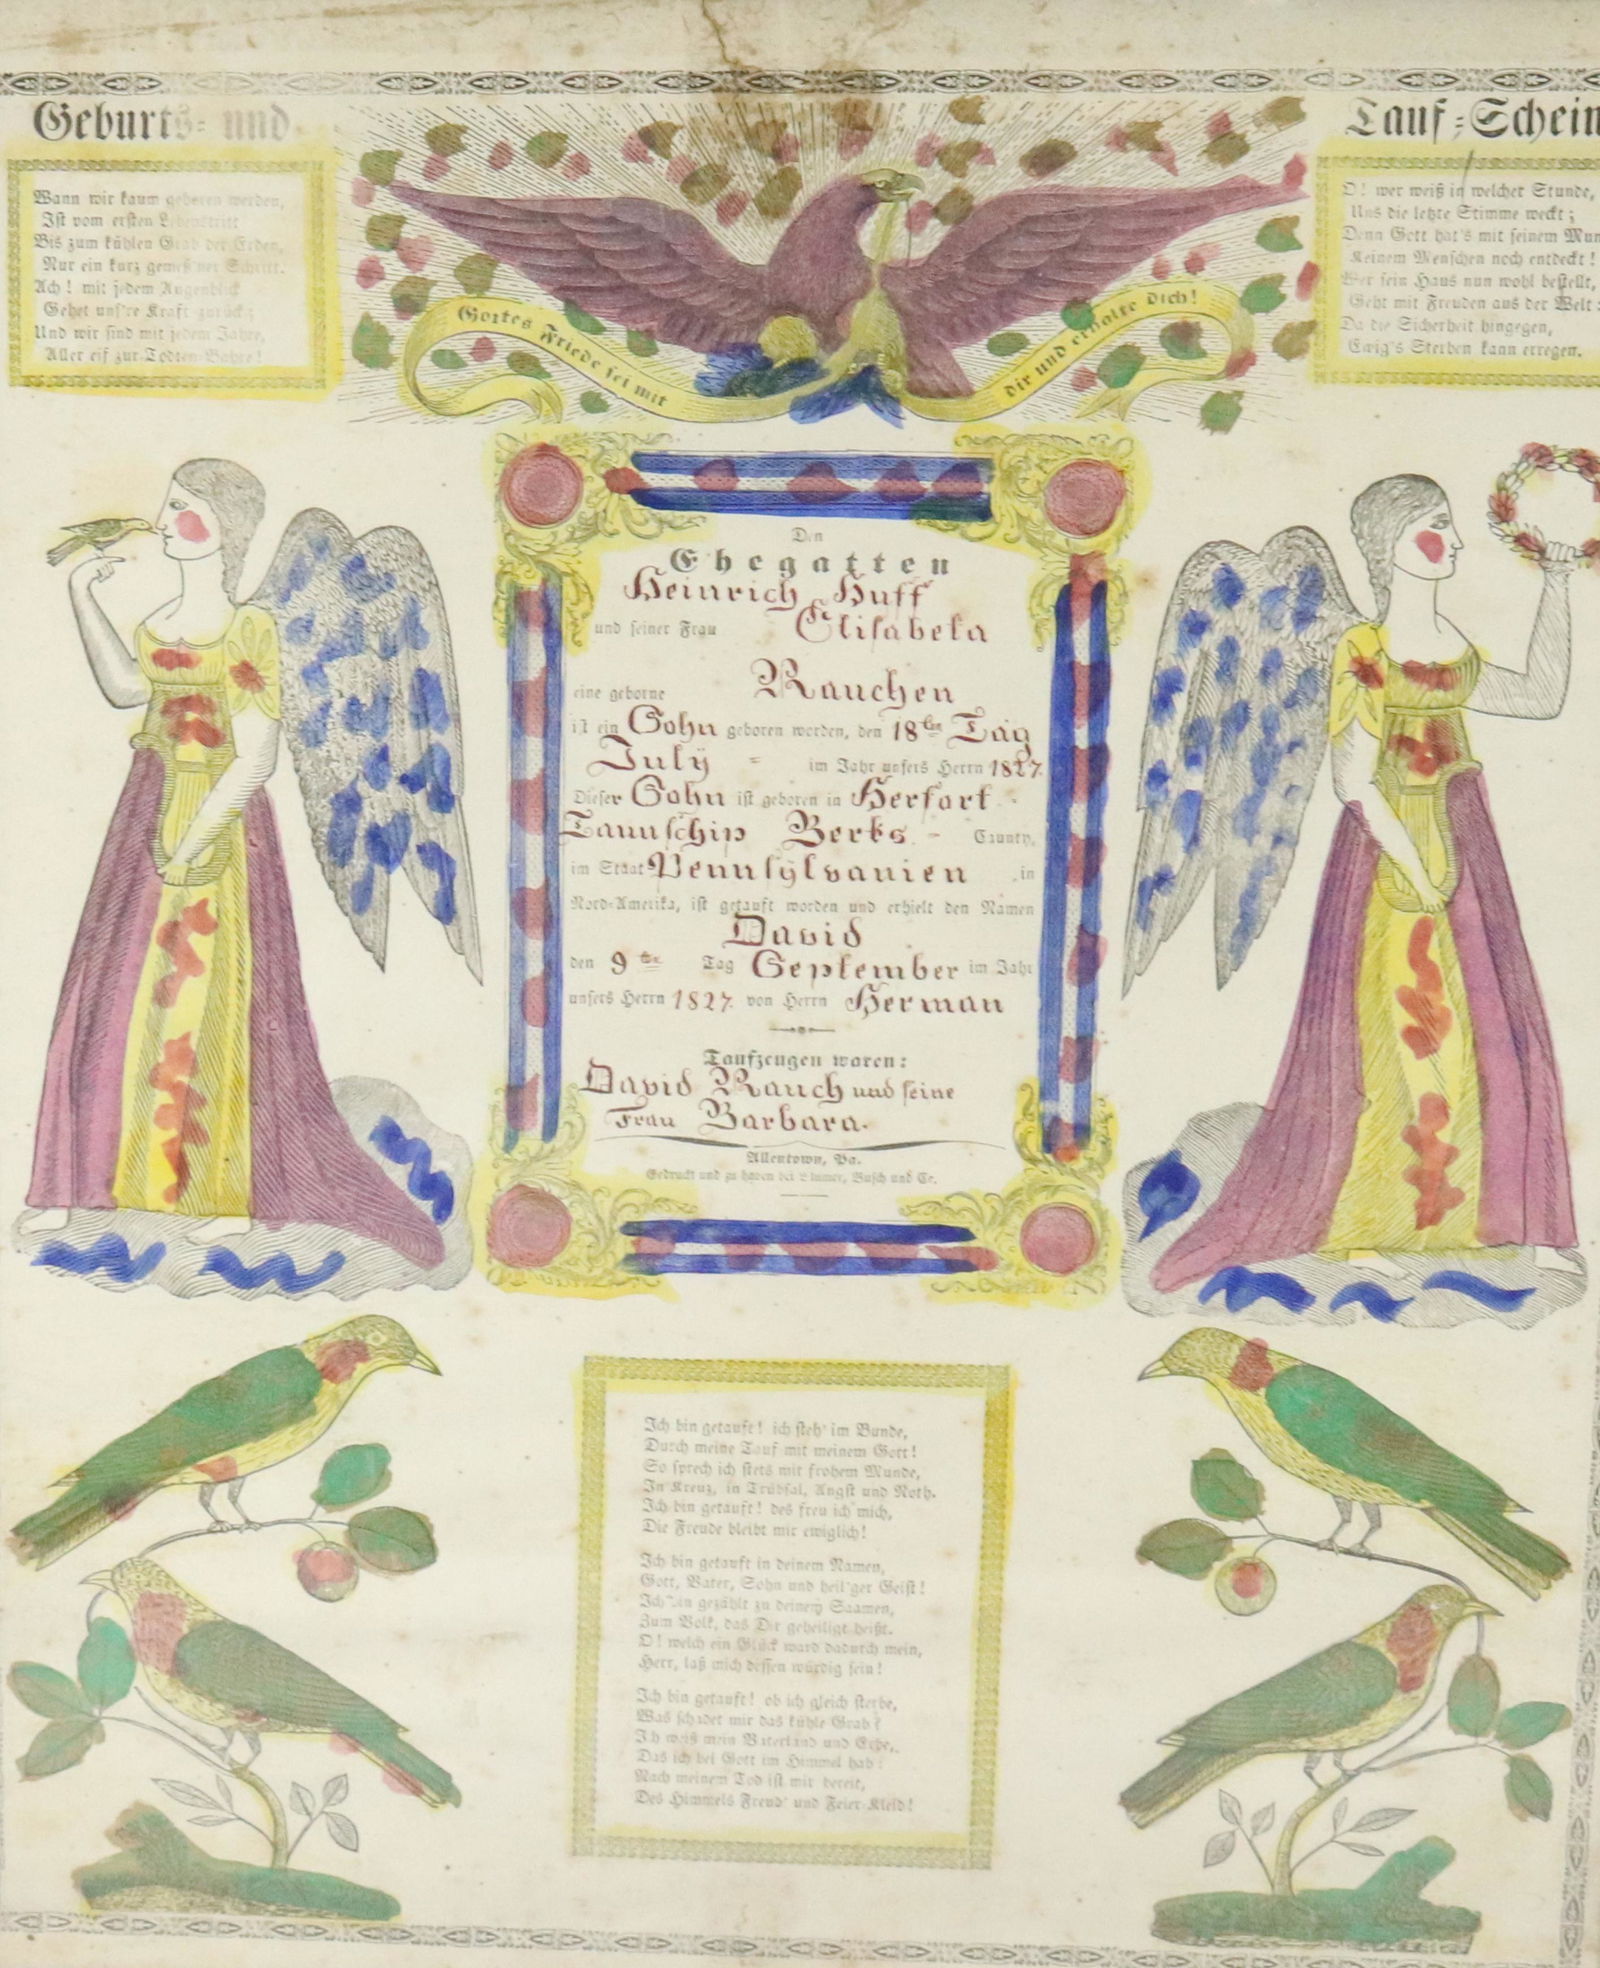 Geburts- und
Tauf-Schein
Wann wir kaum geboren werden,
Ist vom ersten Lebenstritt
Bis zum kühlen Grab der Erden,
Nur ein kurz gemeß'ner Schritt.
Ach! mit jedem Augenblick
Gehet uns're Kraft zurück;
Und wir sind mit jedem Jahre,
Aller eif zur Todten-Bahre!
O! wer weiß in welcher Stunde,
Uns die letzte Stimme weckt;
Denn Gott hat's mit seinem Mun
Keinem Menschen noch entdeckt!
Wer sein Haus nun wohl bestellt,
Geht mit Freuden aus der Welt:
Da die Sicherheit hingegen,
Ewig's Sterben kann erregen.
Gottes Friede sei mit
dir und erhalte dich!
Den
Ehegatten
Heinrich Huff
und seiner Frau Elisabeta
eine geborne Rauchen
ist ein Sohn geboren worden, den 18ten Tag
July = im Jahr unsers Herrn 1827.
Dieser Sohn ist geboren in Herfort
Taunschip Berks - County,
im Staat Pennsylvanien in
Nord-Amerika, ist getauft worden und erhielt den Namen
David
den 9te Tag September im Jahr
unsers Herrn 1827. von Herrn Herman
Taufzeugen waren:
David Rauch und seine
Frau Barbara.
Allentown, Pa.
Gedruckt und zu haben bei Blumer, Busch und Co.
Ich bin getauft! ich steh' im Bunde,
Durch meine Tauf mit meinem Gott!
So sprech ich stets mit frohem Munde,
In Kreuz, in Trübsal, Angst und Noth.
Ich bin getauft! des freu ich mich,
Die Freude bleibt mir ewiglich!
Ich bin getauft in deinem Namen,
Gott, Vater, Sohn und heil'ger Geist!
Ich bin gezählt zu deinem Saamen,
Zum Volk, das Dir geheiligt heißt.
O! welch ein Glück ward dadurch mein,
Herr, laß mich dessen würdig sein!
Ich bin getauft! ob ich gleich sterbe,
Was schadet mir das kühle Grab?
Ich weiß mein Vaterland und Erbe,
Das ich bei Gott im Himmel hab:
Nach meinem Tod ist mir bereit,
Des Himmels Freud' und Feier-Kleid!